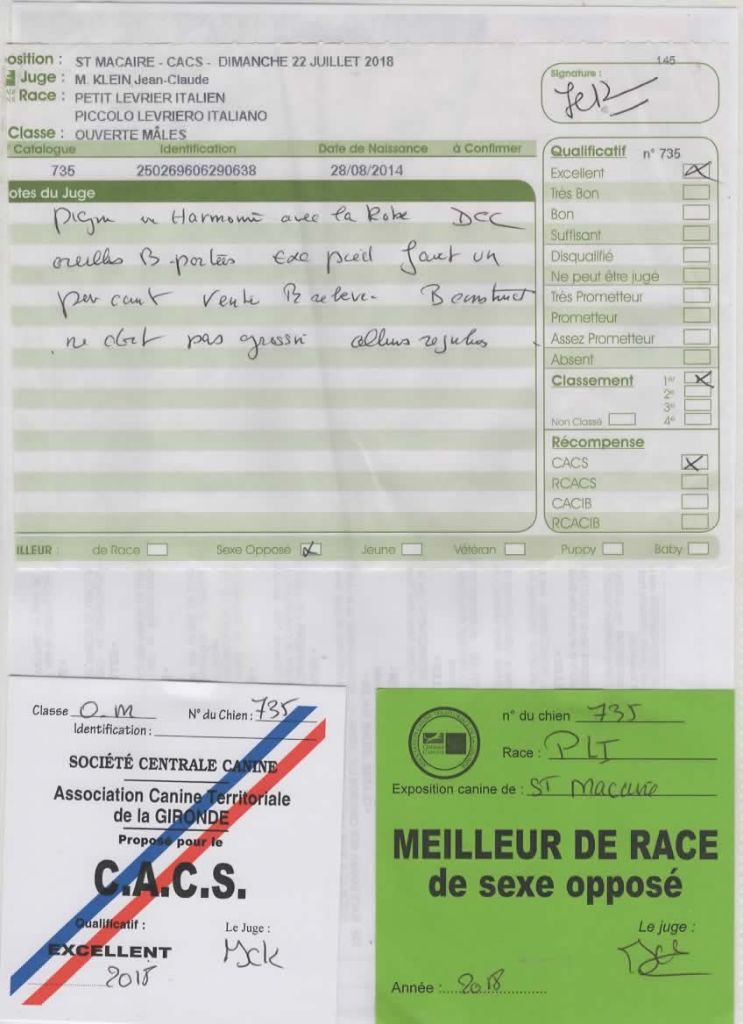 osition : ST MACAIRE - CACS - DIMANCHE 22 JUILLET 2018
145
Juge : M. KLEIN Jean-Claude
Signature :
Race : PETIT LEVRIER ITALIEN
PICCOLO LEVRIERO ITALIANO
Classe : OUVERTE MÂLES
Catalogue Identification Date de Naissance à Confirmer
735 250269606290638 28/08/2014
otes du Juge
en Harmonie avec la Robe DCC
oreilles B. portées pied Javet un
peu court Ventre B releve. B construct
pas allures
Qualificatif n° 735
Excellent X
Très Bon
Bon
Suffisant
Disqualifié
Ne peut être jugé
Très Prometteur
Prometteur
Assez Prometteur
Absent
Classement 1er X
2e
3e
Non Classé 4e
Récompense
CACS X
RCACS
CACIB
RCACIB
ILLEUR : de Race Sexe Opposé X Jeune Vétéran Puppy Baby
Classe O.M N° du Chien : 735
Identification :
SOCIÉTÉ CENTRALE CANINE
Association Canine Territoriale
de la GIRONDE
Proposé pour le
C.A.C.S.
Qualificatif : Le Juge :
EXCELLENT
2018
n° du chien 735
Race : PLI
Exposition canine de : ST Macaire
MEILLEUR DE RACE
de sexe opposé
Le juge :
Année : 2018